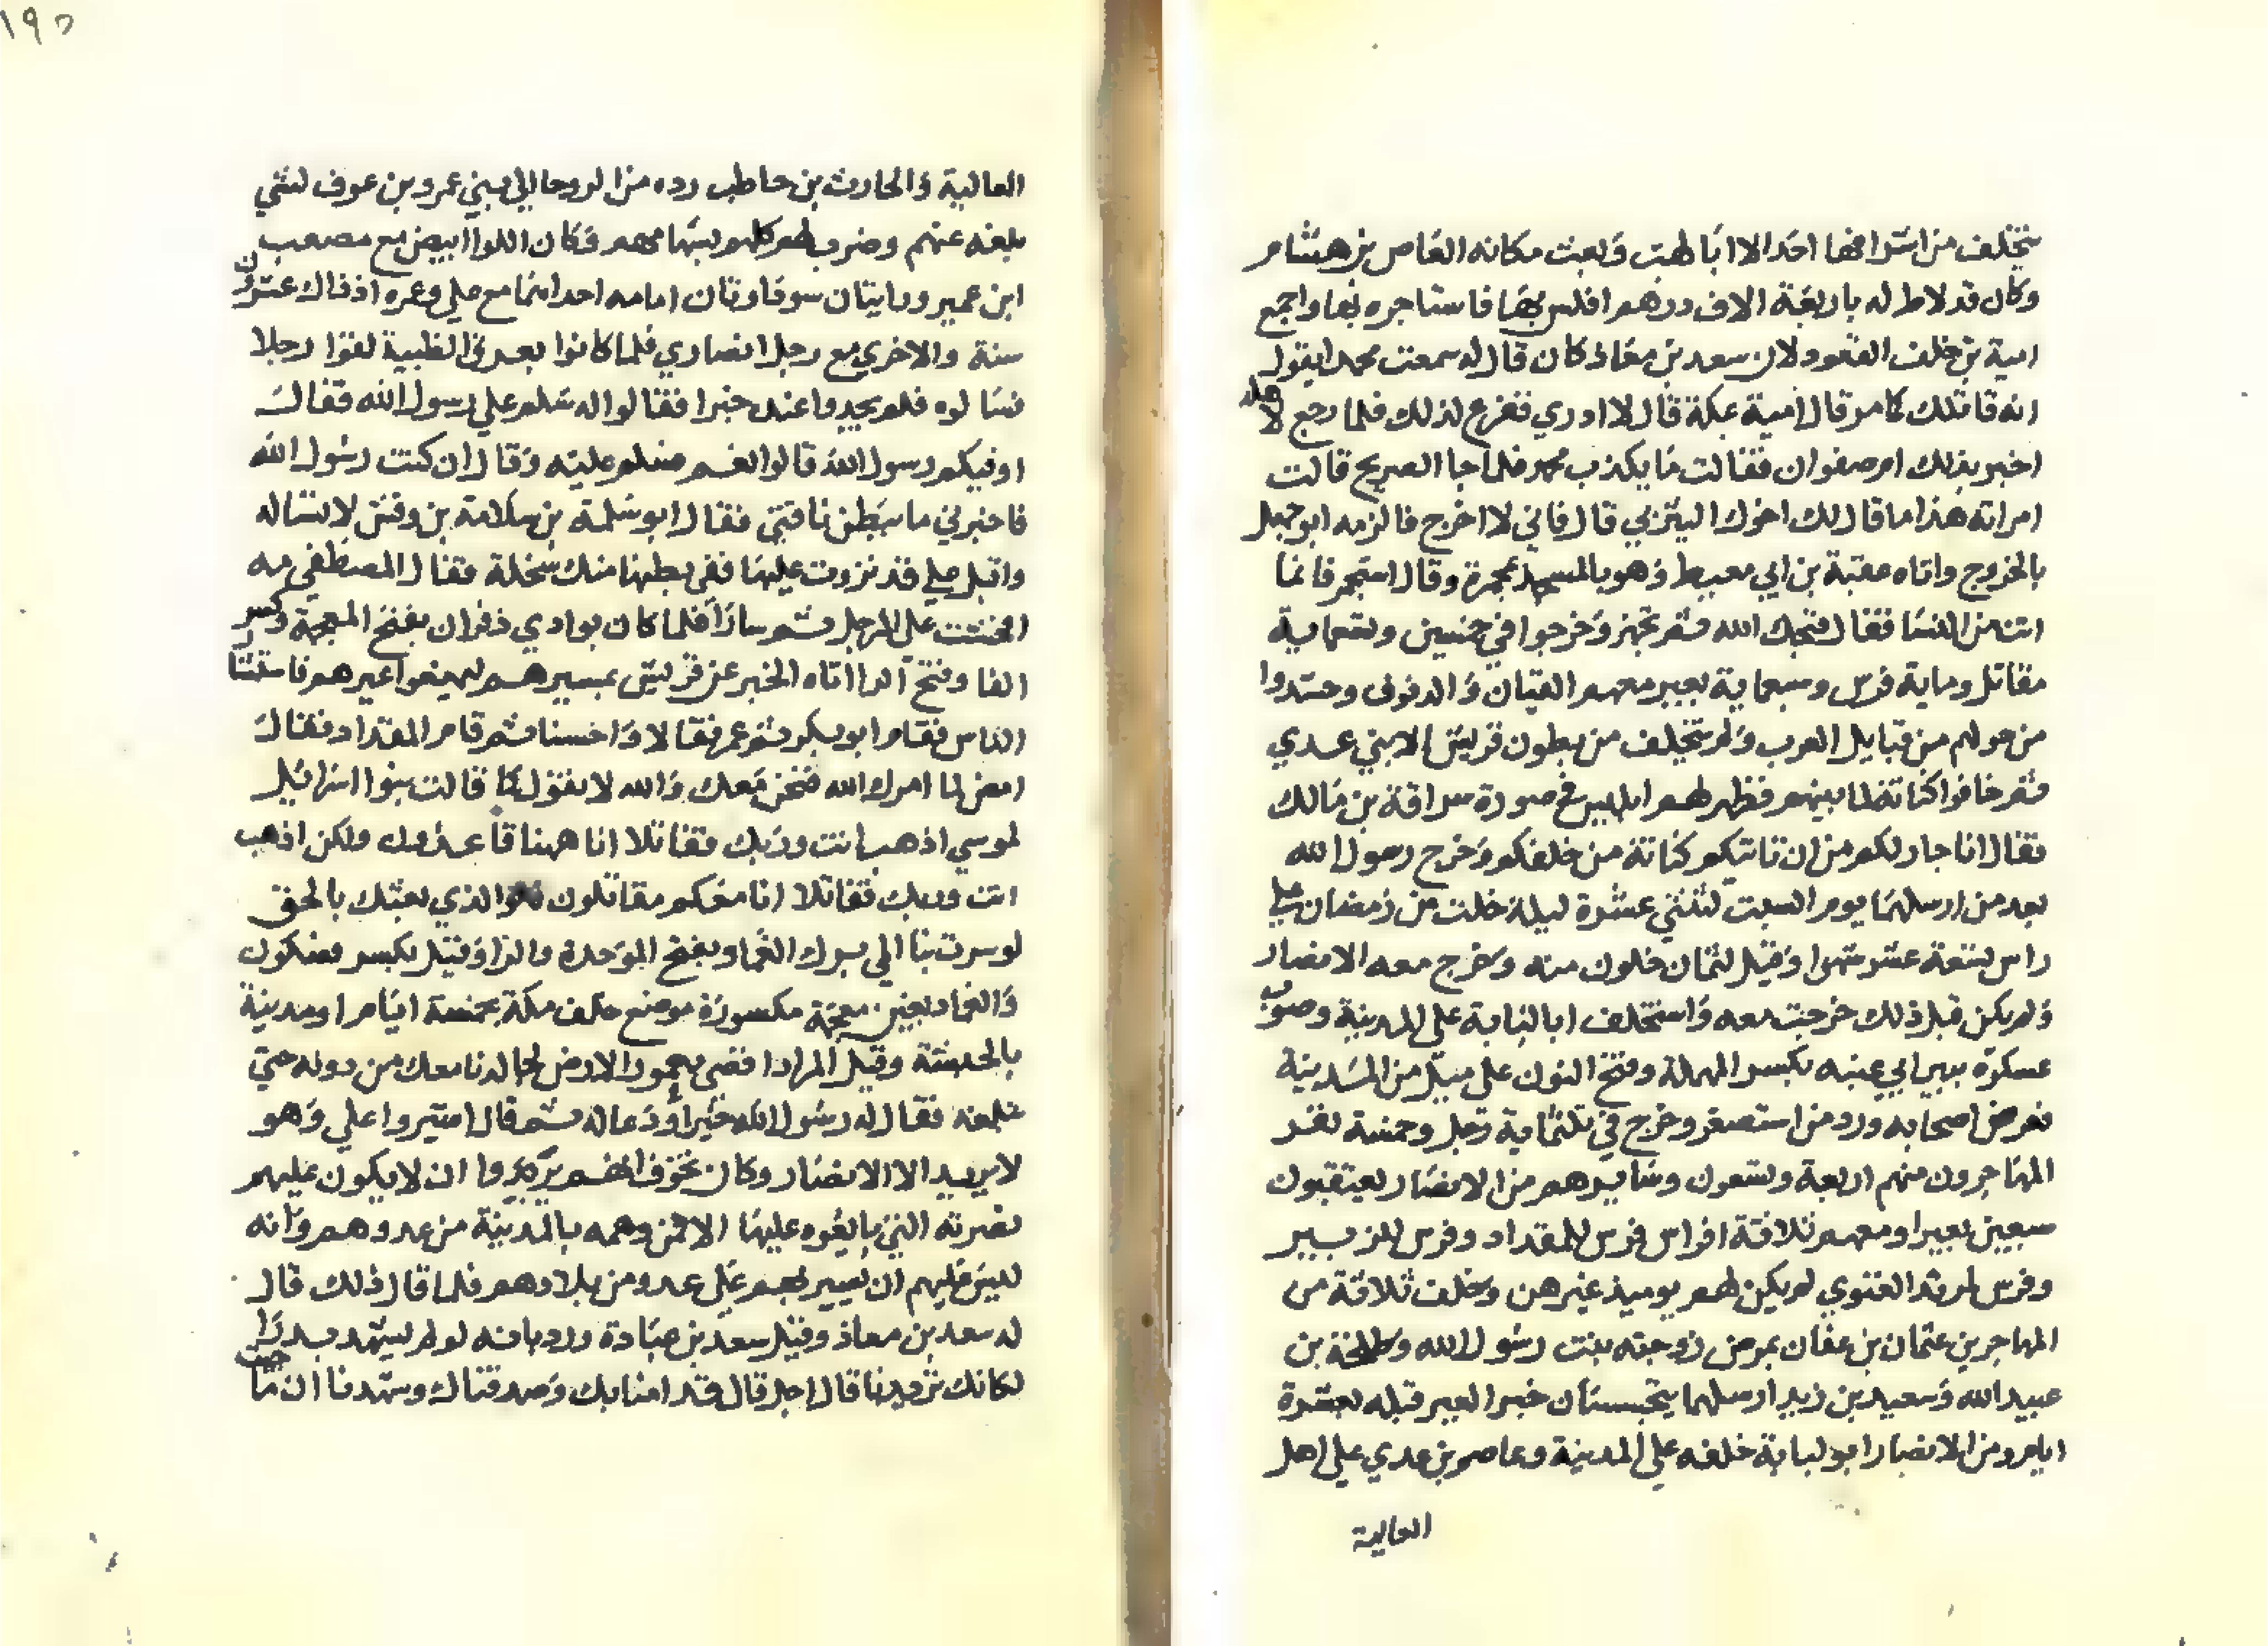 يتخلف من اشرافها احد الا ابا لهب وبعث مكانه العاص بن هشام
وكان قد لاط له باربعة الاف درهم افلس بها فاستاجره بها واجمع
امية بن خلف القعود لان سعد بن معاذ كان قال له سمعت محمدا يقول
انه قاتلك كامر قال امية بمكة قال لا ادري ففزع لذلك فلما رجع لاهله
اخبر بذلك ام صفوان فقالت ما يكذب محمد فلما جا الصريح قالت
امراته هذا ما قال لك اخوك اليثربي قال فاني لا اخرج فالزمه ابو جهل
بالخروج واتاه عقبة بن ابي معيط وهو بالمسجد بمجمرة وقال استجمر فانما
انت من النسا فقال قبحك الله ثم تجهز وخرجوا في خمسين وتسعماية
مقاتل وماية فرس وسبعماية بعير معهم القيان والدفوف وحشدوا
من حولهم من قبايل العرب ولم يتخلف من بطون قريش الا بني عدي
ثم خافوا كنانة لما بينهم فظهر لهم ابليس في صورة سراقة بن مالك
فقال انا جار لكم من ان تاتيكم كنانة من خلفكم وخرج رسول الله
بعد من ارسلهما يوم السبت لثنتي عشرة ليلة خلت من رمضان على
راس تسعة عشر شهرا وقيل لثمان خلون منه وخرج معه الانصار
ولم يكن قبل ذلك خرجت معه واستخلف ابا لبابة على المدينة وضرب
عسكره ببير ابي عنبه بكسر المهملة وفتح النون على ميل من المدينة
فعرض اصحابه ورد من استصغر وخرج في ثلثماية رجل وخمسة نفر
المهاجرون منهم اربعة وتسعون وسايرهم من الانصار يعتقبون
سبعين بعيرا ومعهم ثلاثة افراس فرس للمقداد وفرس للزبير
وفرس لمرثد الغنوي لم يكن لهم يوميذ غيرهن وتخلف ثلاثة من
المهاجرين عثمان بن عفان بمرض زوجته بنت رسول الله وطلحة بن
عبيد الله وسعيد بن زيد ارسلهما يتحسسان خبر العير قبله بعشرة
ايام ومن الانصار ابو لبابة خلفه على المدينة وعاصم بن عدي على اهل
العالية
١٩٥
العالية والحارث بن حاطب رده من الروحا الي بني عمرو بن عوف لشي
بلغه عنهم وضرب لهم كلهم بسهامهم وكان اللوا ابيض مع مصعب
ابن عمير ورايتان سوداوتان امامه احداهما مع علي وعمره اذ ذاك عشرون
سنة والاخري مع رجل انصاري فلما كانوا بعرق الظبية لقوا رجلا
فسالوه فلم يجدوا عنده خبرا فقالوا له سلم علي رسول الله فقال
اوفيكم رسول الله قالوا نعم فسلم عليه وقال ان كنت رسول الله
فاخبرني ما ببطن ناقتي فقال ابو سلمة بن سلامة بن وقش لا تساله
واقبل علي قد نزوت عليها ففي بطنها منك سخلة فقال المصطفي مه
افحشت على الرجل ثم سار فلما كان بوادي ذفران بفتح المعجمة وكسر
الفا وفتح الرا اتاه الخبر عن قريش بمسيرهم ليمنعوا عيرهم فاستشار
الناس فقام ابو بكر ثم عمر فقالا واحسنا ثم قام المقداد فقال
امض لما امرك الله فنحن معك والله لا نقول كما قالت بنوا اسرائيل
لموسي اذهب انت وربك فقاتلا انا ههنا قاعدون ولكن اذهب
انت وربك فقاتلا انا معكم مقاتلون فوالذي بعثك بالحق
لو سرت بنا الي برك الغماد بفتح الموحدة والرا وقيل بكسر فسكون
والغماد بغين معجمة مكسورة موضع خلف مكة بخمسة ايام او مدينة
بالحبشة وقيل المراد اقصى معمور الارض لجالدنا معك من دونه حتي
تبلغه فقال له رسول الله خيرا ودعا له ثم قال اشيروا علي وهو
لا يريد الا الانصار وكان يتخوف انهم يريدوا ان لا يكون عليهم
نصرته التي بايعوه عليها الا ممن دهمه بالمدينة من عدوهم وانه
ليس عليهم ان يسير بهم على عدو من بلادهم فلما قال ذلك قال
له سعد بن معاذ وقيل سعد بن عبادة ورد بانه لو لم يشهد بدرا
لكانك تريدنا قال اجل قال قد امنا بك وصدقناك وشهدنا ان ما جيت